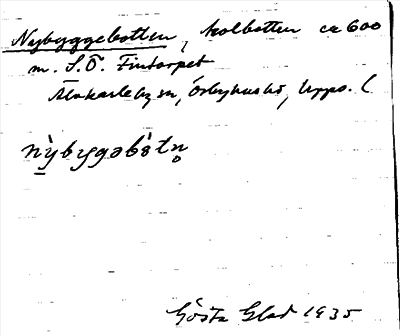 Nybyggebotten, kolbotten ca 600
m. S.Ö. Fintorpet
Älvkarleby sn, Örbyhus hd, Upps. l.
nỳbygəbòtn̥
Gösta Glad 1935